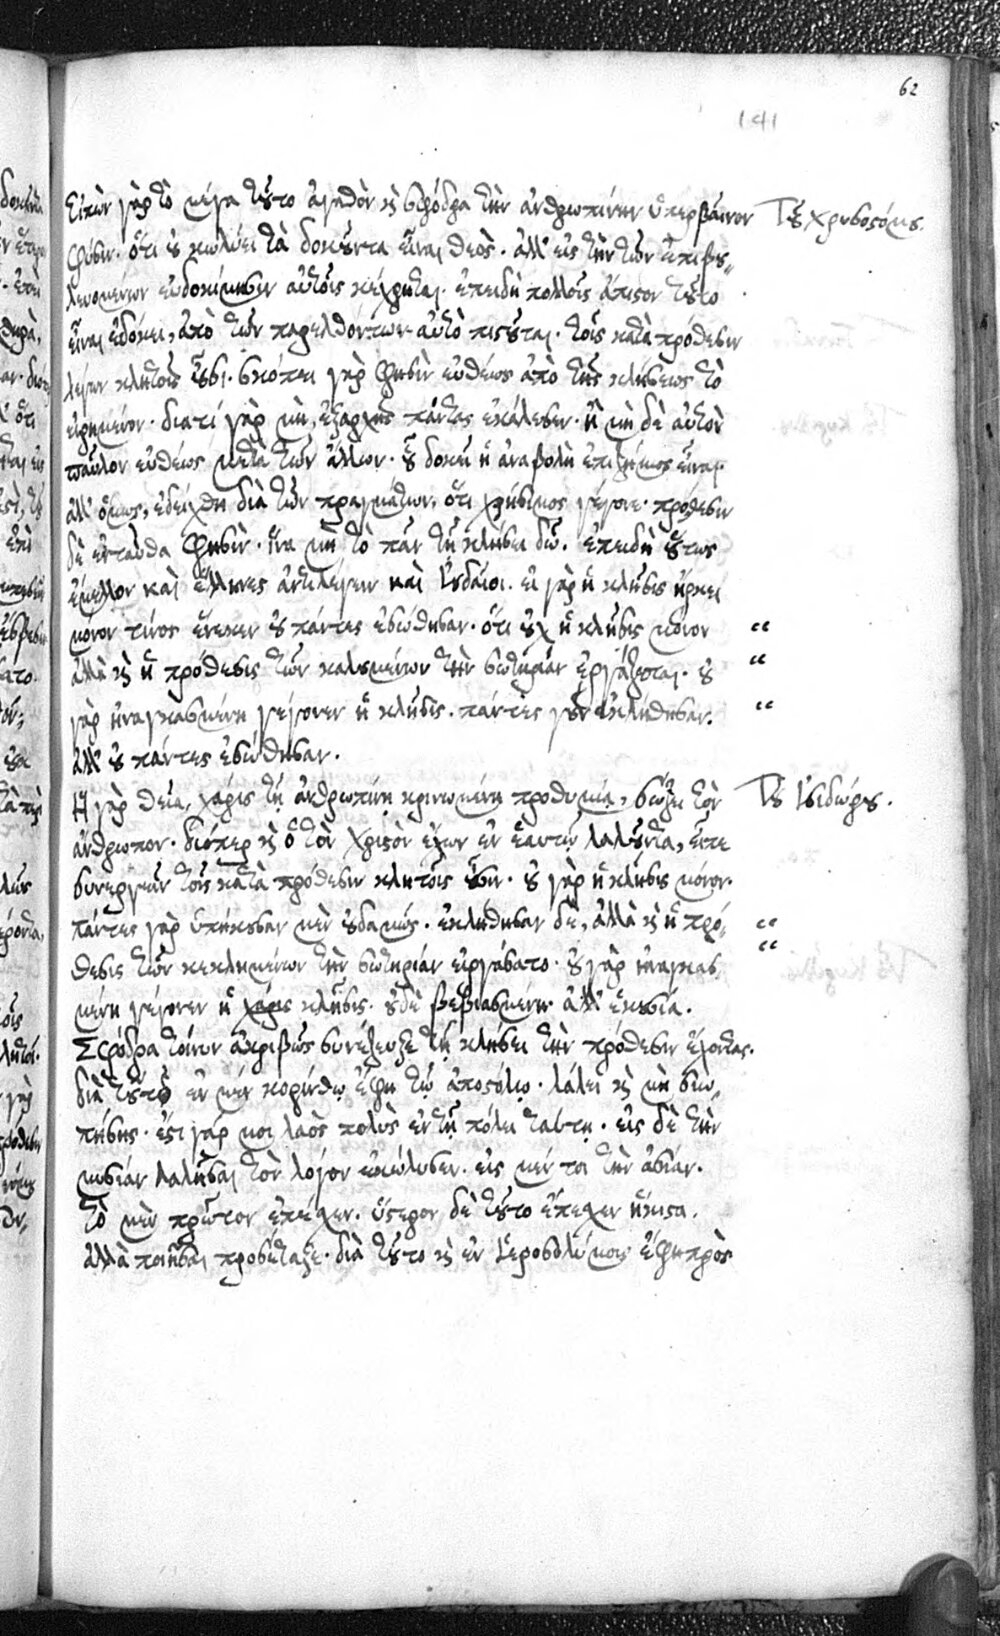 62
141
Εἰπὼν γὰρ τὸ μέγα τοῦτο ἀγαθὸν καὶ σφόδρα τὴν ἀνθρωπίνην ὑπερβαῖνον Τοῦ χρυσοστόμου.
φύσιν· ὅτι οὐ κωλύει τὰ δοκοῦντα εἶναι θεὸς· ἀλλ' εἰς τὴν τῶν ἐπιβου-
λευομένων εὐδοκίμησιν αὐτοῖς κέχρηται· ἐπειδὴ πολλοῖς ἄπιστον τοῦτο
εἶναι ἐδόκει, ἀπὸ τῶν παρελθόντων αὐτὸ πιστοῦται· τοῖς κατὰ πρόθεσιν
λέγων κλητοῖς οὖσι· σκόπει γὰρ φησὶν εὐθέως ἀπὸ τῆς κλήσεως τὸ
εἰρημένον· διατί γὰρ μὴ ἐξαρχῆς πάντας ἐκάλεσεν· ἢ μὴ δὲ αὐτὸν
παῦλον εὐθέως μετὰ τῶν ἄλλων· οὐ δοκεῖ ἡ ἀναβολὴ ἐπιζήμιος εἶναι·
ἀλλ' ὅμως, ἐδείχθη διὰ τῶν πραγμάτων, ὅτι χρήσιμος γέγονε· πρόθεσιν
δὲ ἐνταῦθα φησὶν· ἵνα μὴ τὸ πᾶν τῇ κλήσει δῷ. ἐπειδὴ οὕτως
ἔμελλον καὶ ἕλληνες ἀντιλέγειν καὶ Ἰουδαῖοι. εἰ γὰρ ἡ κλῆσις ἤρκει
μόνον τίνος ἕνεκεν οὐ πάντες ἐσώθησαν· ὅτι οὐχ ἡ κλῆσις μόνον “
ἀλλὰ καὶ ἡ πρόθεσις τῶν καλουμένων τὴν σωτηρίαν ἐργάζεται· οὐ “
γὰρ ἠναγκασμένη γέγονεν ἡ κλῆσις. πάντες γοῦν ἐκλήθησαν. “
ἀλλ' οὐ πάντες ἐσώθησαν.
Ἡ γὰρ θεία χάρις τῇ ἀνθρωπίνῃ κρινωμένη προθυμίᾳ, σώζει τὸν Τοῦ Ἰσιδώρου.
ἄνθρωπον· διόπερ καὶ ὁ τὸν χριστὸν ἔχων ἐν ἑαυτῷ λαλοῦντα, εἶπε
συνεργεῖν τοῖς κατὰ πρόθεσιν κλητοῖς οὖσιν· οὐ γὰρ ἡ κλῆσις μόνον·
πάντες γὰρ ὑπήκουσαν μὲν οὐδαμῶς· ἐκλήθησαν δὲ, ἀλλὰ καὶ ἡ πρό- “
θεσις τῶν κεκλημένων τὴν σωτηρίαν εἰργάσατο· οὐ γὰρ ἠναγκασ- “
μένη γέγονεν ἡ χάρις κλῆσις· οὐδὲ βεβιασμένη ἀλλ' ἑκουσία.
Σφόδρα τοίνυν ἀκριβῶς συνέζευξε τῇ κλήσει τὴν πρόθεσιν ἔχοντας.
διὰ τοῦτο ἐν μὲν κορίνθῳ ἔφη τῷ ἀποστόλῳ· λάλει καὶ μὴ σιω-
πήσῃς· ἔστι γάρ μοι λαὸς πολὺς ἐν τῇ πόλει ταύτῃ. εἰς δὲ τὴν
μυσίαν λαλῆσαι τὸν λόγον ἐκώλυσεν. εἰς μέν τοι τὴν ἀσίαν.
τὸ μὲν πρῶτον ἐπέσχεν. ὕστερον δὲ τοῦτο ἐπέσχεν ἥκιστα.
ἀλλὰ ποιῆσαι προσέταξε· διὰ τοῦτο καὶ ἐν Ἱεροσολύμοις ἔφη πρὸς